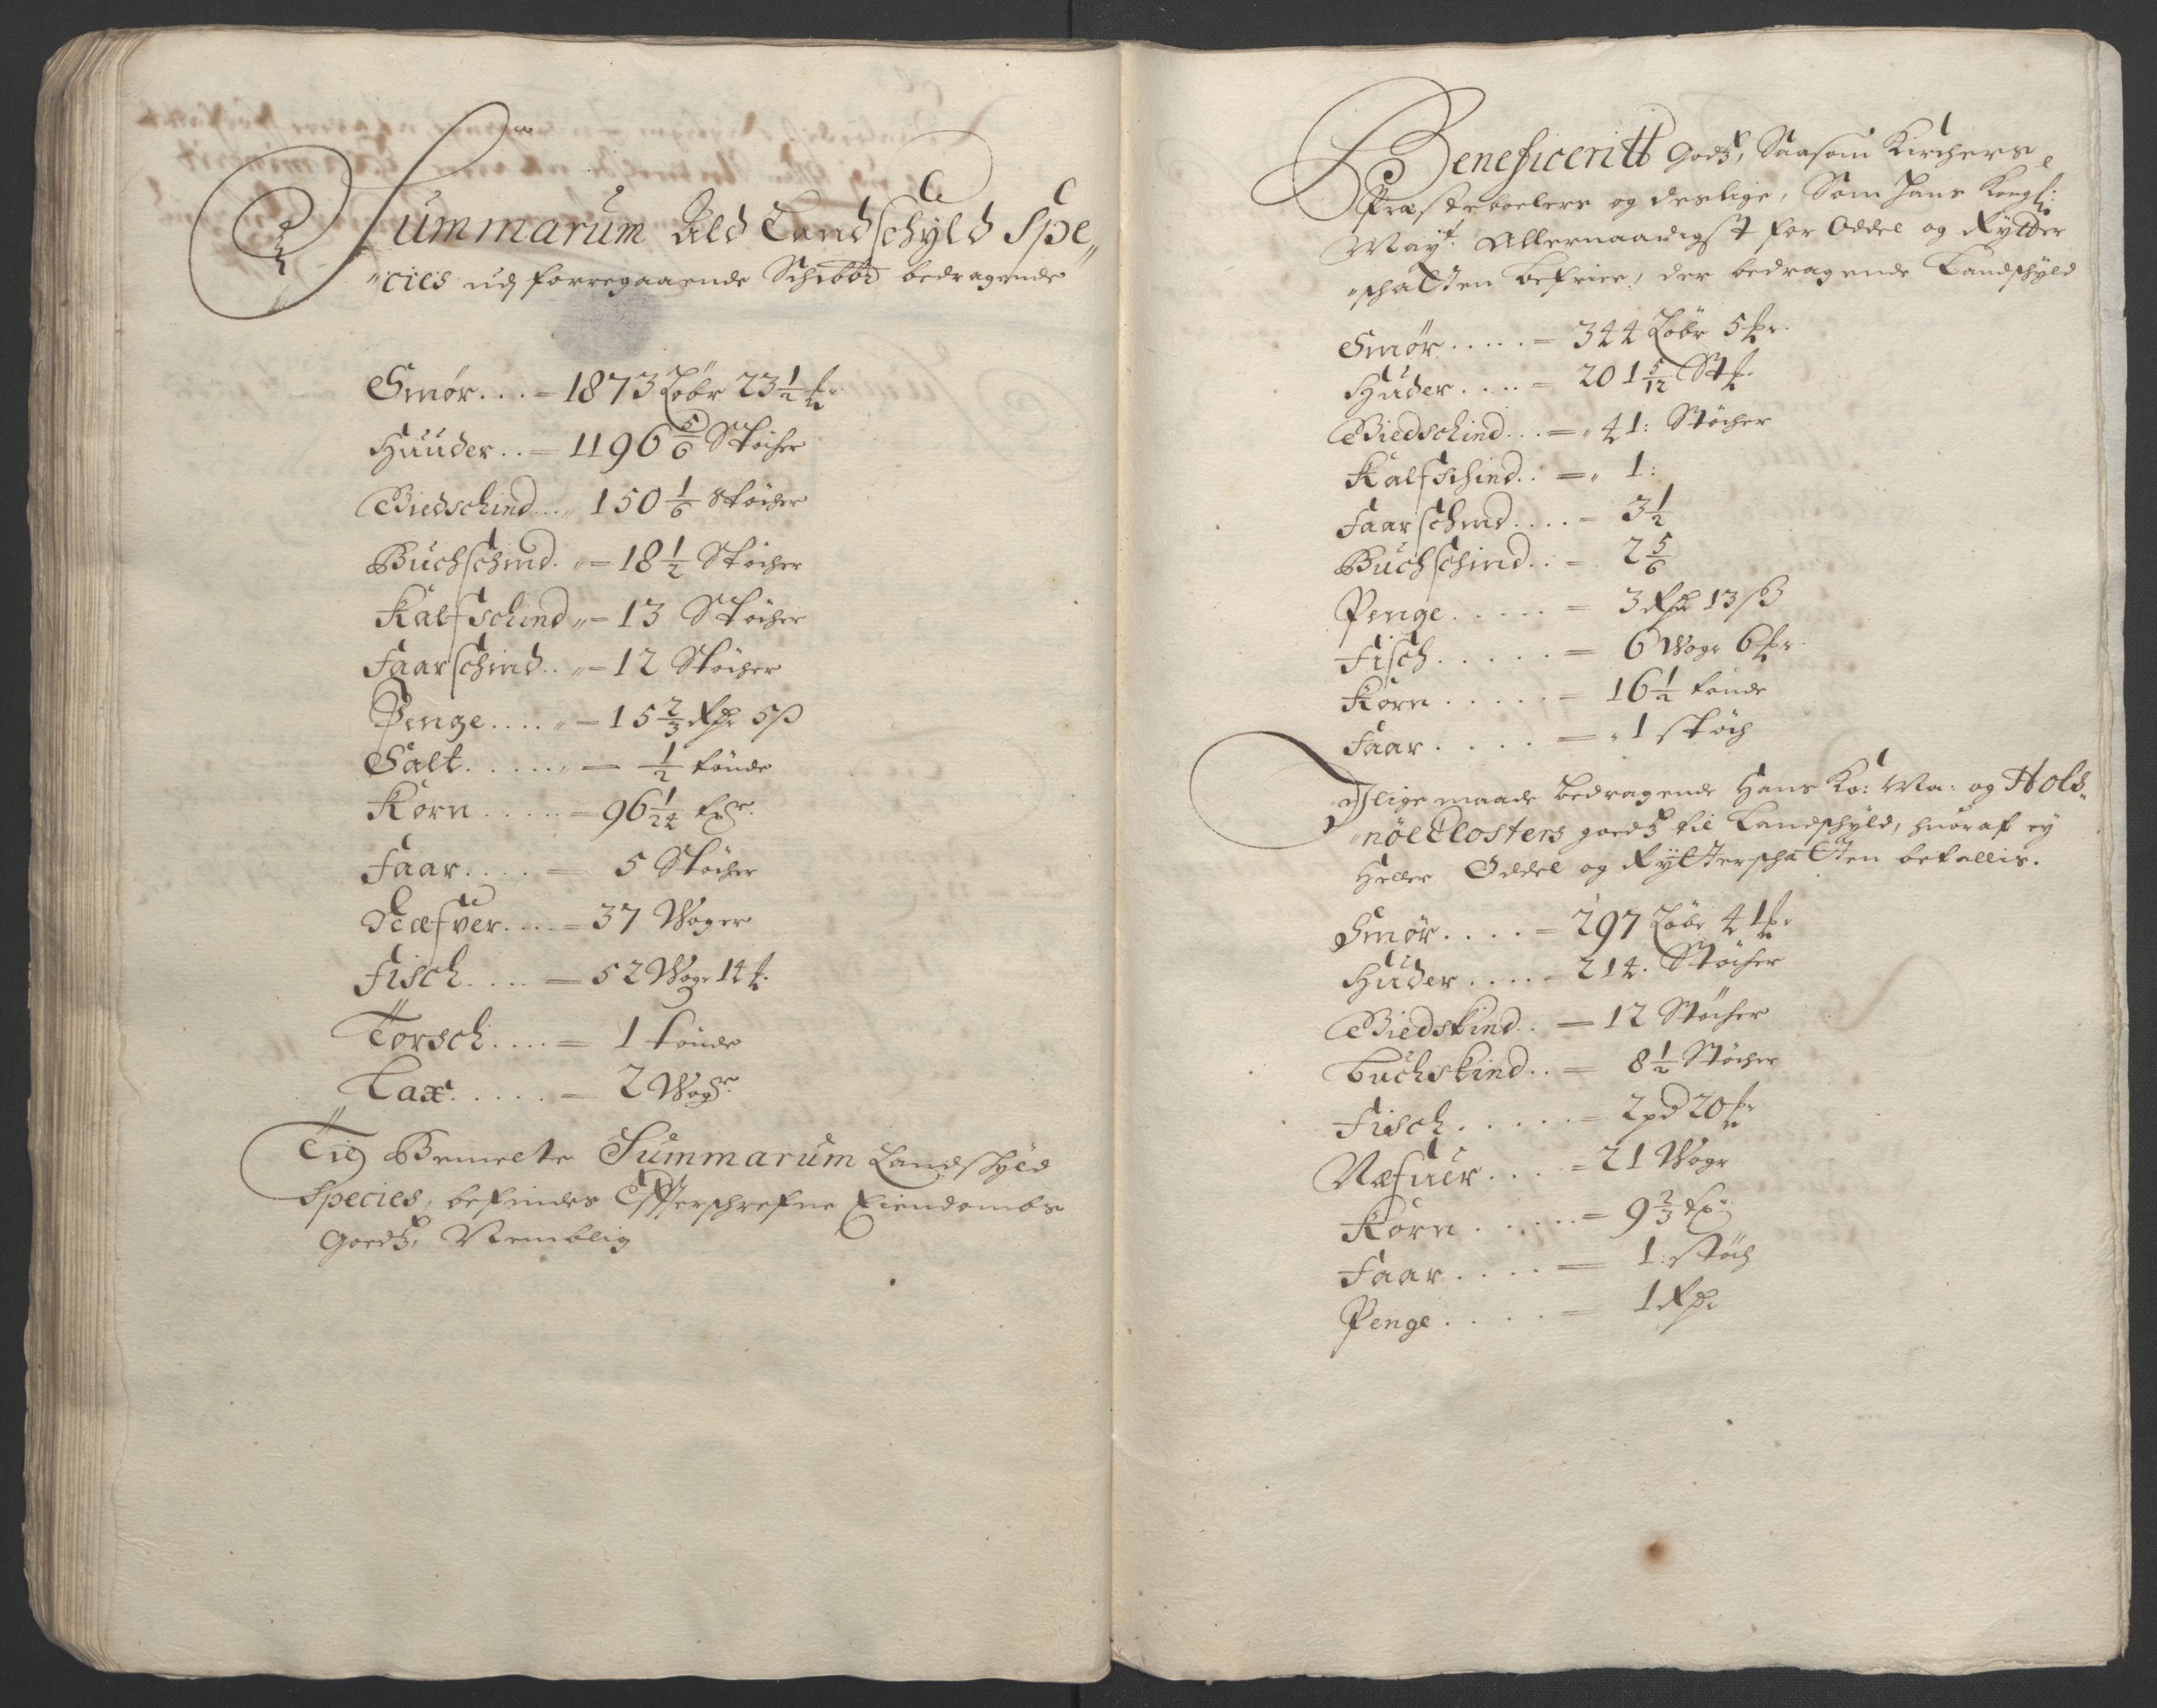 Summarum Ald Landschyld Spe„
„cies udj forregaaende Schibbr bedragende
Smør . . . = 1873 Løbr 23 1/2 ℔r
Huuder . . = 1196 5/6 Støcher
Biedschind . . . „ 150 1/6 Støcher
Buchschind . „ = 18 1/2 Støcher
Kalfschind „ = 13 Støcher
Faarschind . . „ = 12 Støcher
Penge . . . . „ = 15 2/3 Rdr 5 ß
Salt . . . . . „ = 1/2 tønde
Korn . . . . . = 96 1/24 tr
Faar . . . . = 5 Støcher
Næfver . . . . = 37 Woger
Fisch . . . . = 52 Wogr 14 ℔
Torsch . . . . = 1 tønde
Lax . . . . . = 2 Wogr
Til Bemelte Summarum Landschyld
Species, befindes Effterschrefne Eiendombs
Goedz, Nemblig
Beneficeritt Godz, Saasom Kirchers
Præsteboelers og deslige, Som Hans Kongl:
Mayt: Allernaadigst for Oddel og Rytter
„schatten befrier, der bedragende Landschyld
Smør . . . . . = 344 Løbr 5 ℔r
Huder . . . . = 201 5/12 St
Biedschind . . . = „ 41: Støcher
Kalfschind . . = „ 1:
Faarschind . . . . = 3 1/2
Buchschind . . = 2 5/6
Penge . . . . . = 3 Rdr 13 ß
Fisch . . . . . = 6 Wogr 6 ℔r
Korn . . . . . = 16 1/2 tønde
Faar . . . . = „ 1 støch
Jlige maade bedragende Hans Ko: Ma: og Hols„
„nøe Closters goedz til Landschyld, huoraf ej
Heller Oddel og Rytterschatten betallis.
Smør . . . . = 297 Løbr 41 ℔r
Huder . . . . = 214. Støcher
Biedskind . . = 12 Støcher
buchskind . . = 8 1/2 Støcher
Fisch . . . . . = 2 pd 20 ℔r
Næfuer . . . . = 21 Wogr
Korn . . . . . = 9 2/3 tr
Faar . . . . = 1: støch
Penge . . . . = 1 Rdr